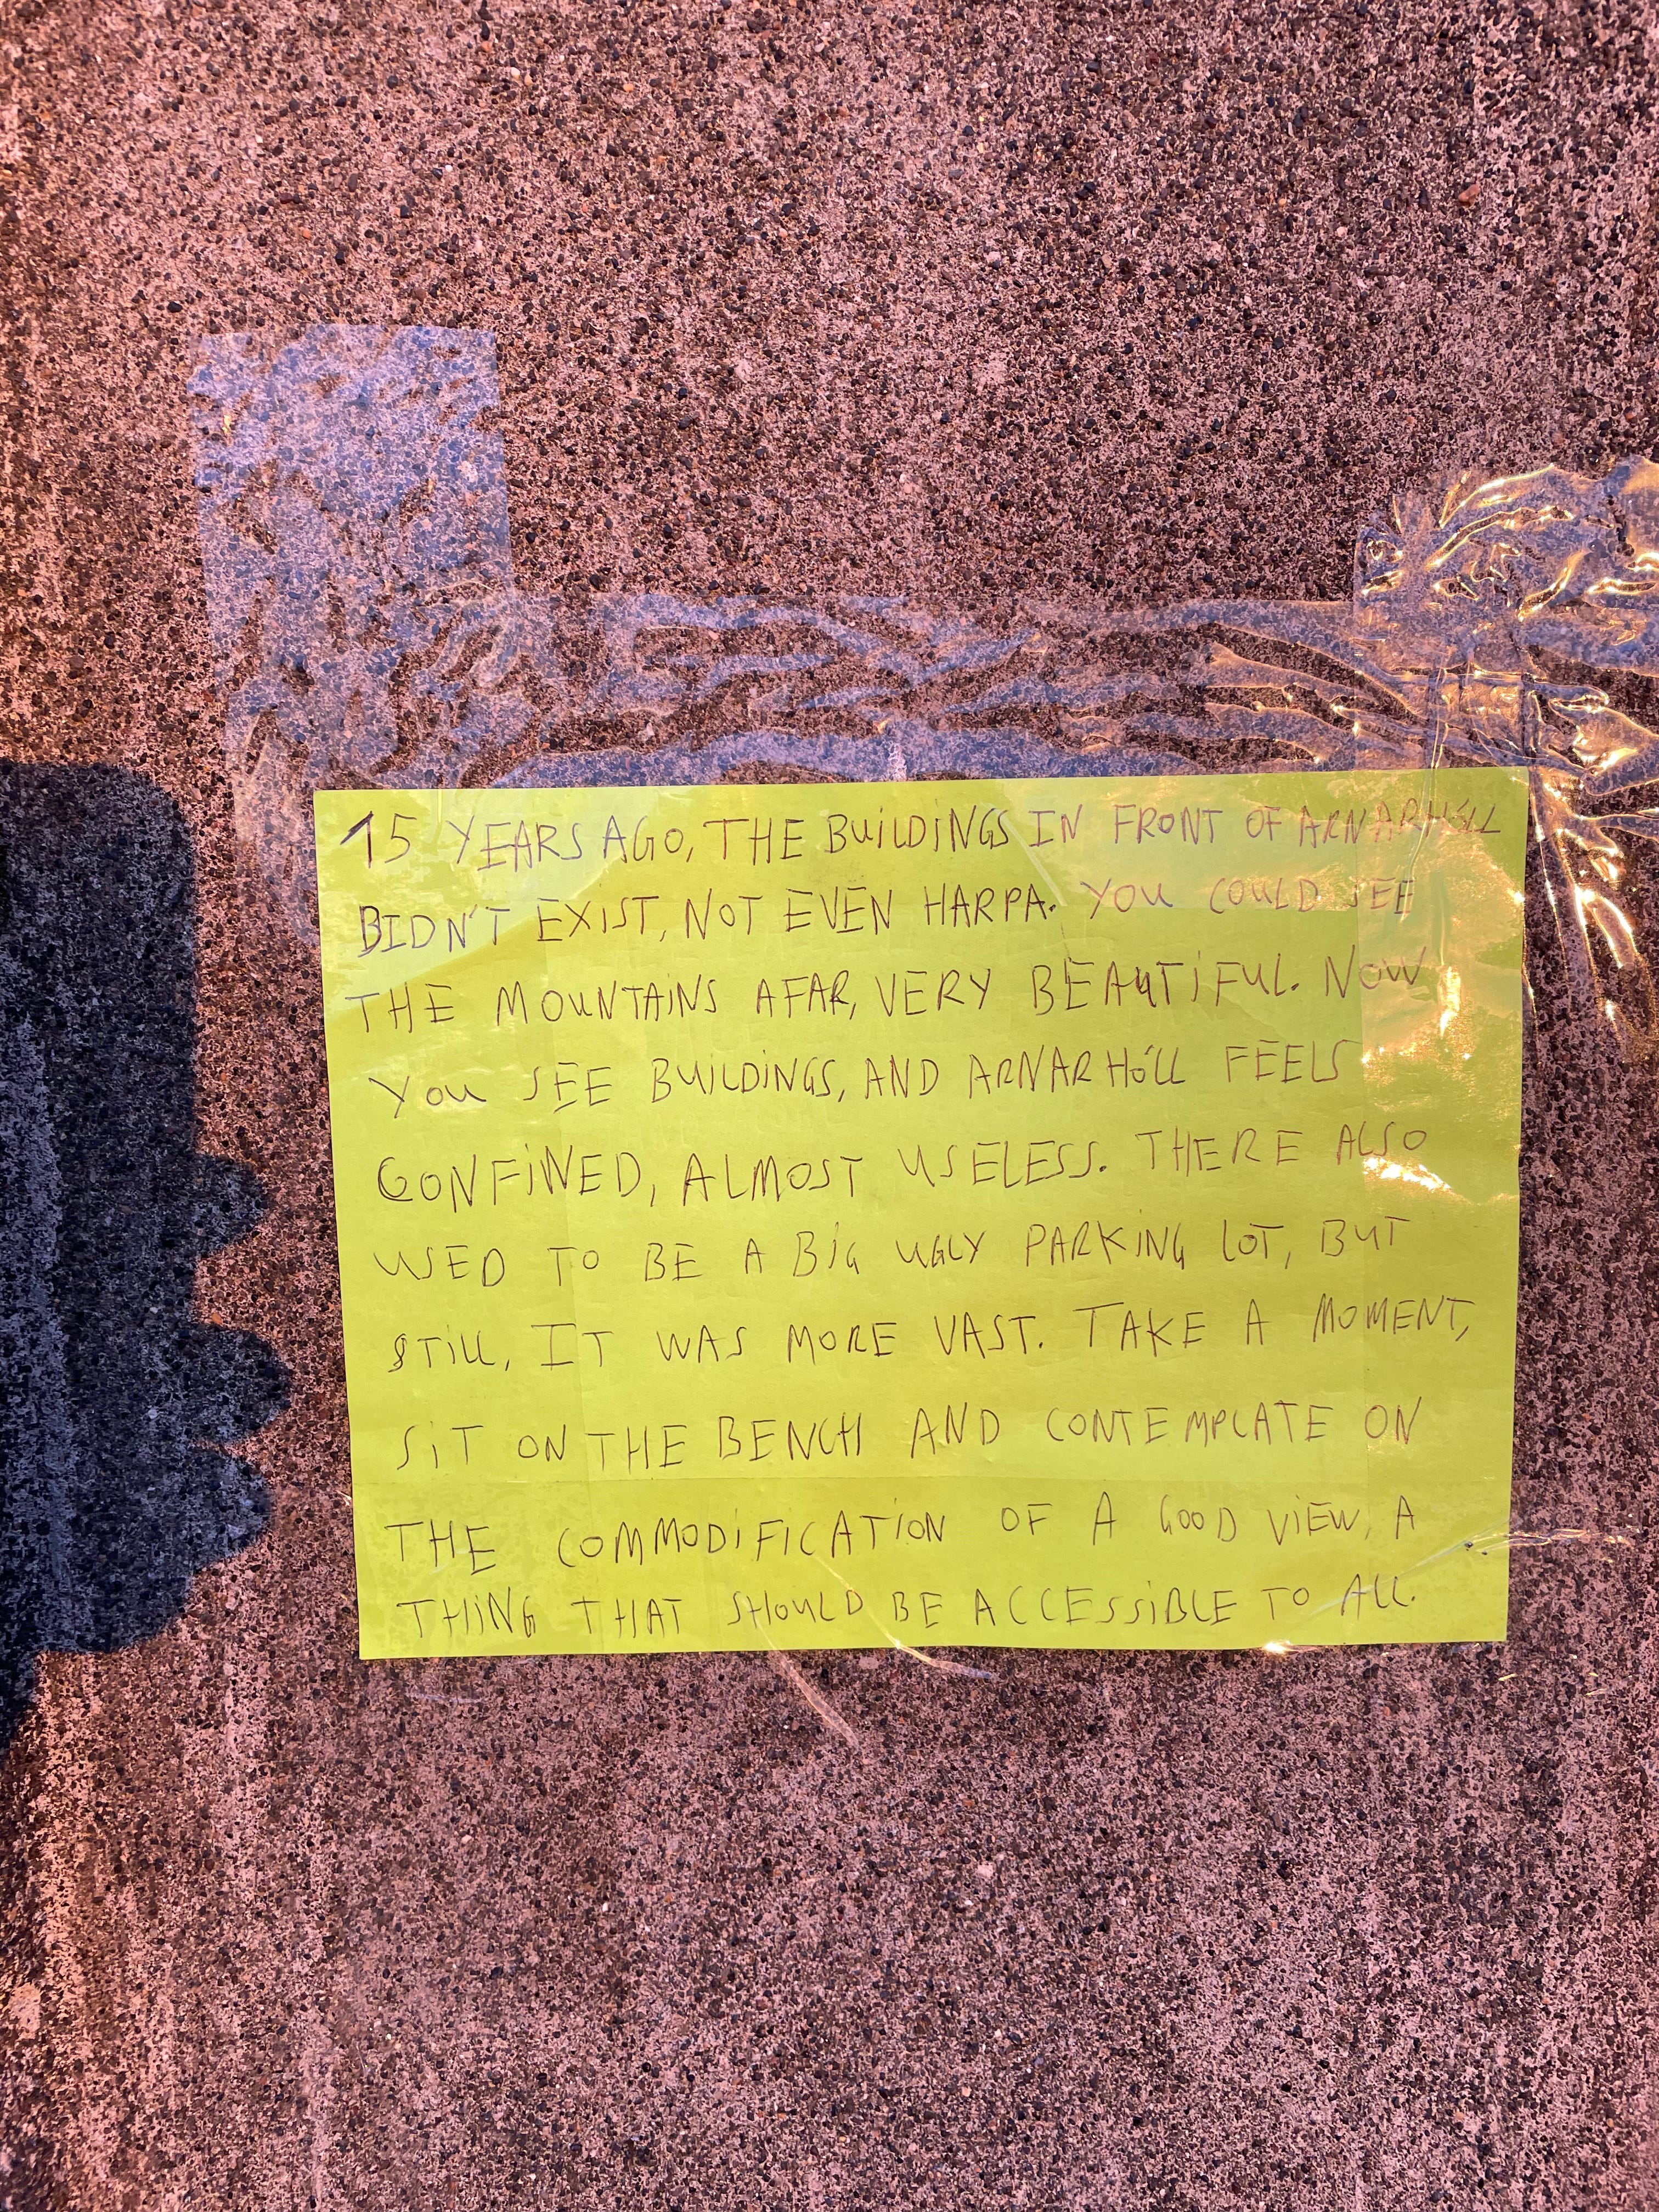 15 YEARS AGO, THE BUILDINGS IN FRONT OF ARNARHÓLL
DIDN'T EXIST, NOT EVEN HARPA. YOU COULD SEE
THE MOUNTAINS AFAR, VERY BEAUTIFUL. NOW
YOU SEE BUILDINGS, AND ARNARHÓLL FEELS
CONFINED, ALMOST USELESS. THERE ALSO
USED TO BE A BIG UGLY PARKING LOT, BUT
STILL, IT WAS MORE VAST. TAKE A MOMENT,
SIT ON THE BENCH AND CONTEMPLATE ON
THE COMMODIFICATION OF A GOOD VIEW, A
THING THAT SHOULD BE ACCESSIBLE TO ALL.